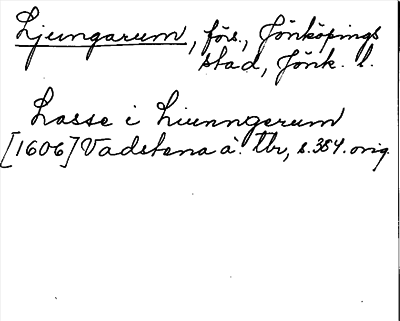 Ljungarum, förs., Jönköpings
stad, Jönk. l.
Lasse i Liunngerum
[1606] Vadstena ä. tbr, s. 354. orig.